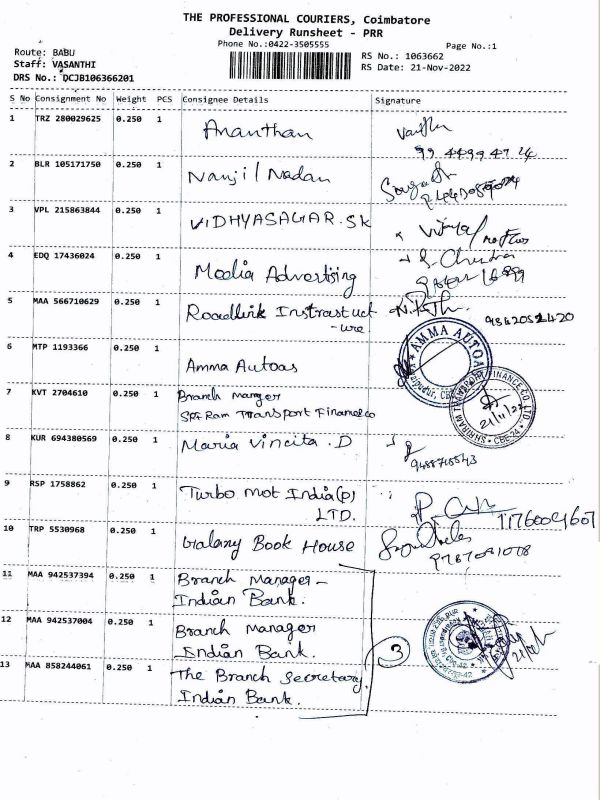 THE PROFESSIONAL COURIERS, Coimbatore
Delivery Runsheet - PRR
Phone No.:0422-3505555
Page No.:1
Route: BABU
Staff: VASANTHI
DRS No.: DCJB106366201
RS No.: 1063662
RS Date: 21-Nov-2022
S No Consignment No Weight PCS Consignee Details Signature
1 TRZ 280029625 0.250 1 Ananthan
2 BLR 105171750 0.250 1 Nanjil Nadan
3 VPL 215863844 0.250 1 VIDHYASAGAR.SK
4 EDQ 17436024 0.250 1 Media Advertising
5 MAA 566710629 0.250 1 Roadlink Instrastuct
-ure
6 MTP 1193366 0.250 1 Amma Autoas
AMMA AUTOA
7 KVT 2704610 0.250 1 Branch manger
Sri Ram Transport Finance co
21/11/22
8 KUR 694380569 0.250 1 Maria Vincita .D
9488718543
9 RSP 1758862 0.250 1 Turbo mot India(p)
LTD.
10 TRP 5530968 0.250 1 Galaxy Book House
11 MAA 942537394 0.250 1 Branch Manager -
Indian Bank.
12 MAA 942537004 0.250 1 Branch Manager
Indian Bank.
3
13 MAA 858244061 0.250 1 The Branch Secretary,
Indian Bank.